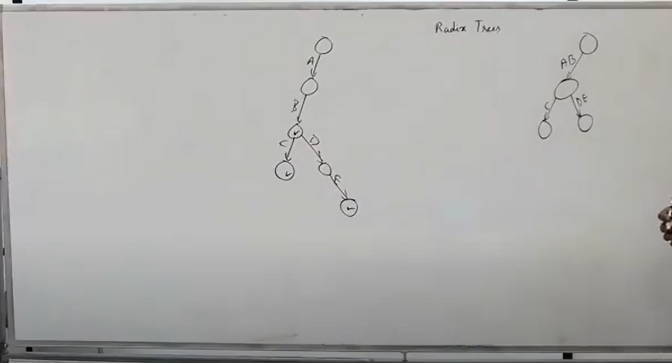 Radix Trees
A
B
C
D
E
AB
C
DE